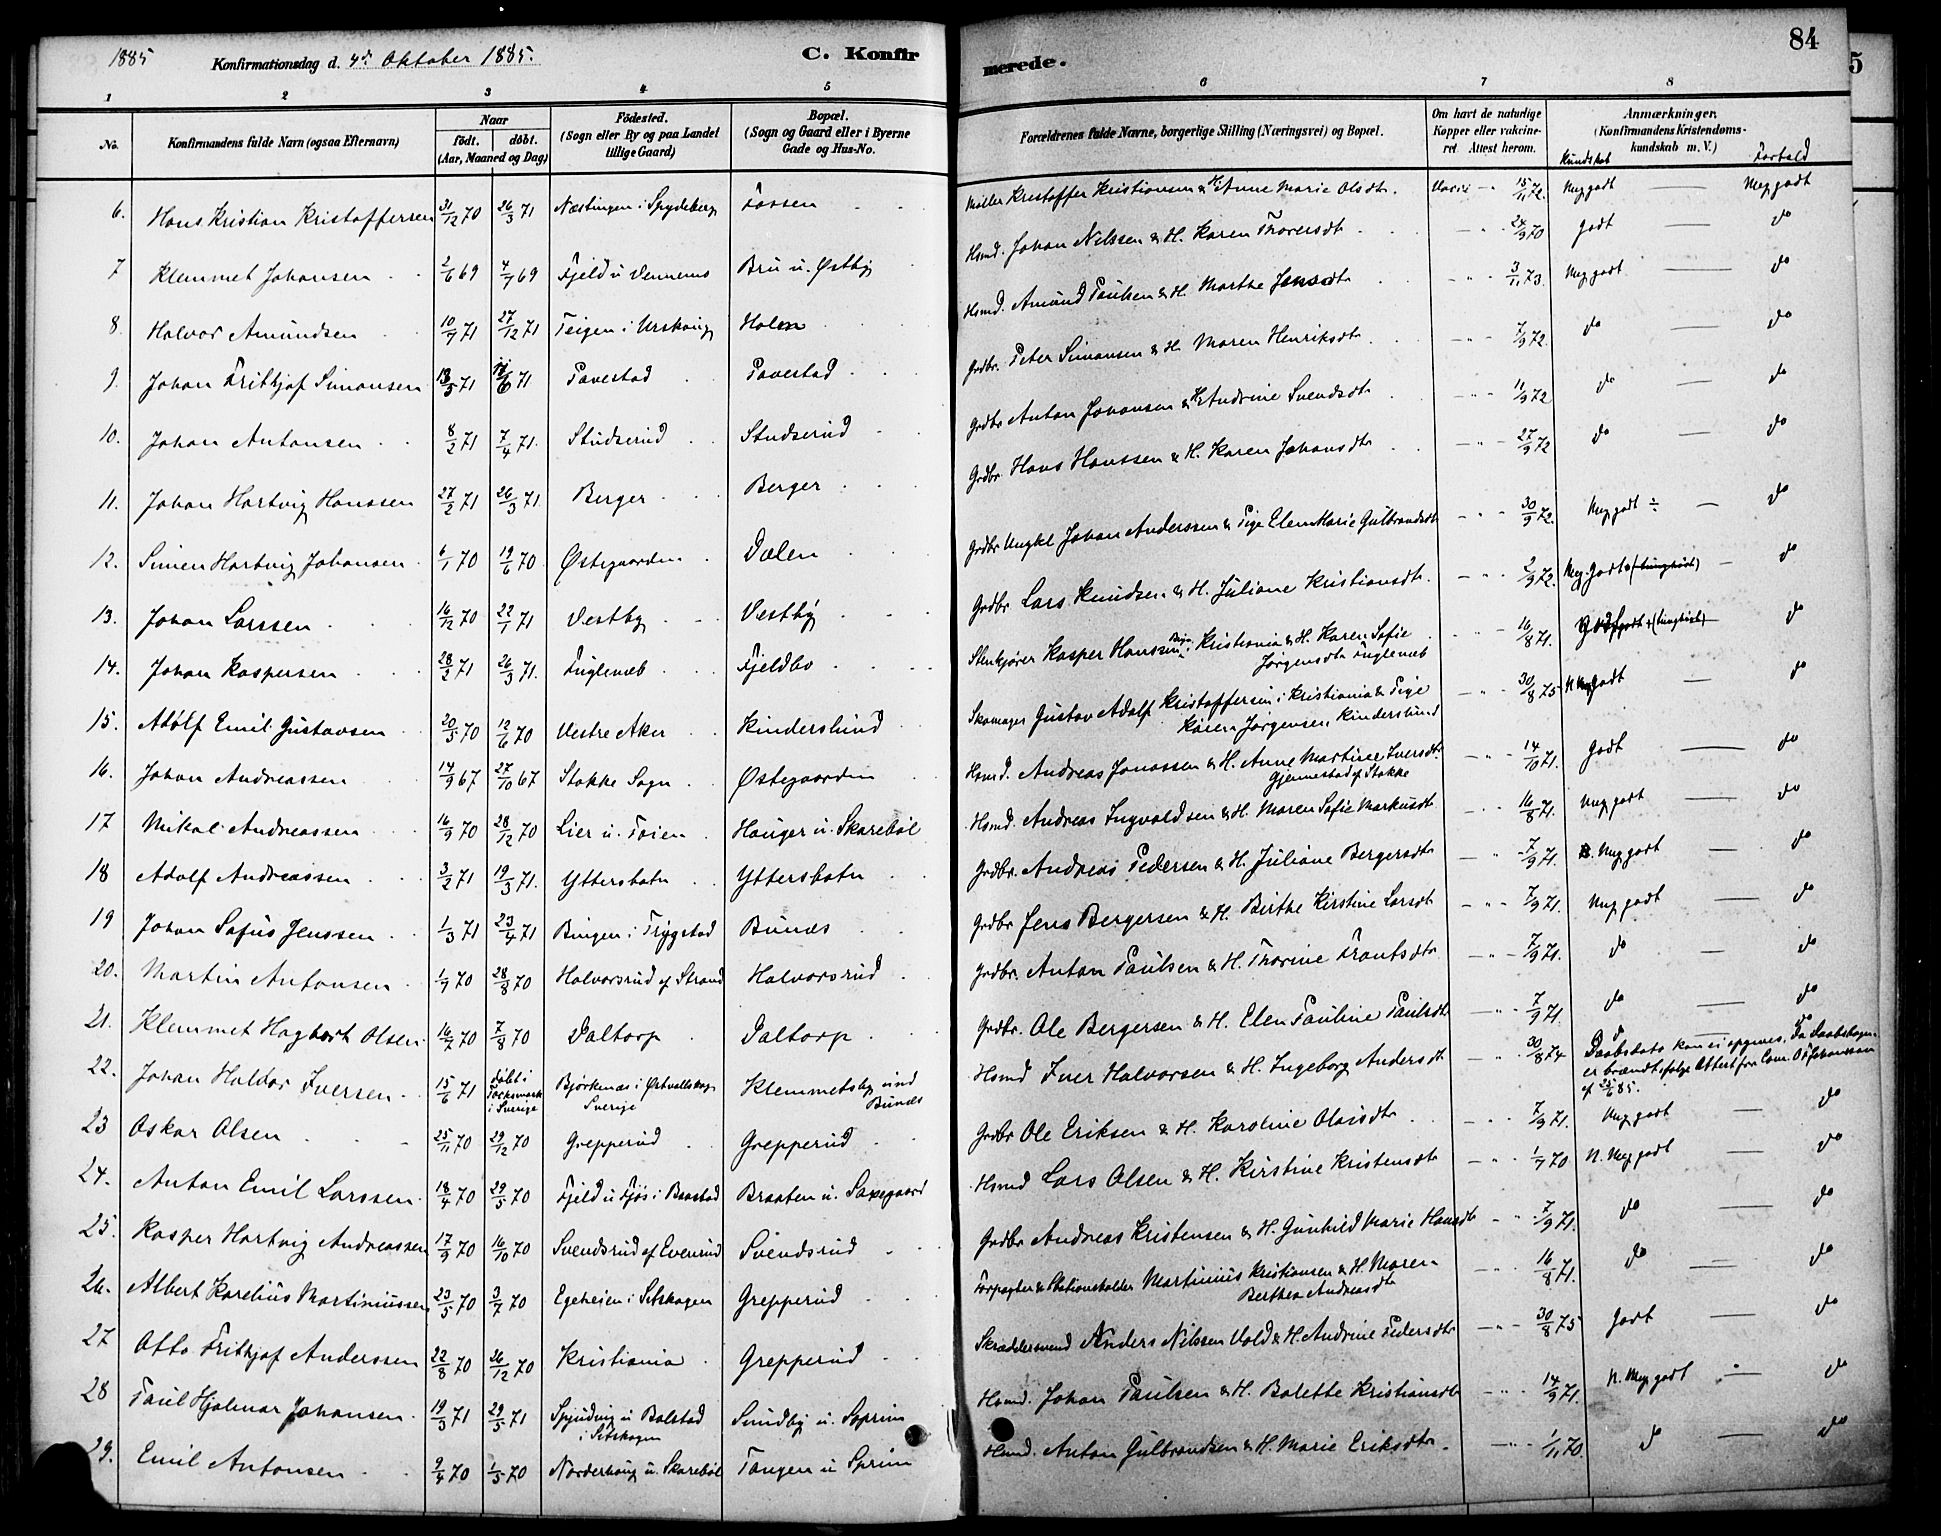 1885 Konfirmationsdag d. 4de Oktober 1885. C. Konfirmerede. 84
1 2 3 4 5 6 7 8
No. Konfirmandens fulde Navn (ogsaa Efternavn) Naar født. døbt. (Aar, Maaned og Dag) Fødested. (Sogn eller By og paa Landet tillige Gaard) Bopæl. (Sogn og Gaard eller i Byerne Gade og Hus-No. Forældrenes fulde Navne, borgerlige Stilling (Næringsvei) og Bopæl. Om havt de naturlige Kopper eller vakcineret Attest herom. Anmærkninger. (Konfirmandens Kristendomskundskab m. V.) Kundskab Forhold
6. Hans Kristian Kristoffersen 31/12 70 26/3 71 Næstingen i Spydeberg Fossen Møller Kristoffer Kristiansen & H. Anne Marie Olsdtr. Vacci - " 15/11 72. Meg godt — Meg godt
7 Klemmet Johansen 2/6 69 4/7 69 Fjeld u Vennems Bru u. Østby Hsmd. Johan Nilsen & H. Karen Thoversdtr - " - 24/9 70 Godt — do
8. Halvor Amundsen 10/9 71 27/12 71 Teigen i Urskoug Holm Hsmd. Amund Paulsen & H. Marthe Jensdtr - " - 3/11 73. Meg godt — do
9. Johan Fritjof Simonsen 13/5 71 6 71 Tavestad Tavestad Grdbr. Peter Simonsen & H. Maren Henriksdtr - " - 7/9 72. do — do
10. Johan Antonsen 8/2 71 7/4 71. Studserud Studserud Grdbr Anton Johansen & H. Andrine Svendsdtr - " - 11/9 72 do — do
11. Johan Hartvig Hanssen 27/2 71 26/3 71 Berger Berger Grdbr Hans Hanssen & H. Karen Johansdtr - " - 27/9 72 do — do
12. Simen Hartvig Johansen 6/1 70 19/6 70 Østegaarden Dælen Grdbr Ungkl Johan Anderssen & Pige Elen Marie Gulbrandsdtr - " - 30/9 72. Meg godt ÷ — do
13. Johan Larssen 16/12 70 22/1 71 Vestby Vestby Grdbr Lars Knudsen & H. Juliane Kristiansdtr. - " - 2/9 72. Meg. Godt (tunghørt) — do
14. Johan Kaspersen 28/2 71 26/3 71. Fuglenæb Fjeldbo Stenkjører Kasper Hanssen, Kristiania & H. Karen Sofie Jørgensdtr Fuglenæb - " - 16/8 71. do
15. Adolf Emil Gustavsen 20/5 70 12/6 70 Vestre Aker Kinderslund Skomager Gustav Adolf Kristoffersen i Kristiania & Pige Karen Jørgensen Kinderslund - " - 30/8 75 N Meg godt — do
16. Johan Andreassen 14/9 67 27/10 67 Stokke Sogn Østegaarden Hsmd. Andreas Jonassen & H. Anne Martine Iversdtr. Gjennestad af Stokke - " - 14/10 71. Godt — do
17 Mikal Andreassen 16/9 70 28/12 70 Lier u. Toien Hauger u. Skarebøl Hsmd. Andreas Ingvaldsen & H. Maren Sofie Markusdtr - " - 16/8 71. Meg godt — do
18 Adolf Andreassen 3/2 71 19/3 71. Ytterskatn Ytterskatn Grdbr. Andreas Pedersen & H. Juliane Bergersdtr - " - 7/9 71. N. Meg godt — do
19 Johan Sofus Jenssen 1/3 71 23/4 71 Bingen i Trygstad Bunes Grdbr Jens Bergersen & H. Birthe Kirstine Larsdtr - " - 7/9 71. Meg godt — do
20. Martin Antonsen 1/7 70 28/8 70 Halvorsrud af Strand Halvorsrud Grdbr. Anton Paulsen & H. Thorine Frantsdtr - " - 7/9 71. do — do
21. Klemmet Hagbart Olsen 16/7 70 7/8 70 Daltorp Daltorp Grdbr. Ole Bergersen & H. Elen Pauline Paulsdtr - " - 7/9 71. do — do
22. Johan Haldor Iversen 15/6 71 døbt i Tocksmark i Sverige Bjørknes i Østvallskog Sverige Klemmetsby und Bunes Hsmd Iver Halvorsen & H. Ingeborg Andersdtr - " - 30/8 74 do — do Daabsdato kan ei opgives, da Daabsbogen er brændt, ifølge Attest fra Com. O. Johansson af 25/6 85.
23 Oskar Olsen 25/11 70 29/12 70 Grepperud Grepperud Grdbr Ole Eriksen & H. Karoline Olavsdtr - " - 7/9 71. Meg godt — do
24. Anton Emil Larssen 18/4 70 29/5 70 Fjeld u Fjøs i Baastad Braaten u. Saxegaard Hsmd Lars Olsen & H. Kirstine Kristensdtr - " - 1/7 70 N. Meg godt — do
25. Kasper Hartvig Andreassen 17/9 70 16/10 70 Svendsrud af Evenrud Svendsrud Grdbr Andreas Kristensen & H. Gunhild Marie Hansdtr - " - 7/9 71. do — do
26. Albert Karelius Martiniussen 23/5 70 3/7 70 Egeheien i Setskogen Grepperud Forpagter & Stationsholder Martinius Kristiansen & H. Maren Berthea Andreasdtr - " - 16/8 71. do — do
27 Otto Fritjof Anderssen 22/8 70 26/12 70 Kristiania Grepperud Skræddersvend Anders Nilssen Vold & H. Andrine Pedersdtr - " - 30/8 75 Godt — do
28 Paul Hjalmar Johansen 19/3 71 29/5 71 Spjudvig u Bolstad i Setskogen Sundby u. Soprim Hsmd. Johan Paulsen & H. Bolette Kristiansdtr - " - 14/9 71. N. Meg godt — do
29. Emil Antonsen 9/4 70 1/5 70 Norderhaug u. Skarebøl Tangen u Sprim Hsmd. Anton Gulbrandsen & H. Marie Eriksdtr. - " - 1/11 70. do — do